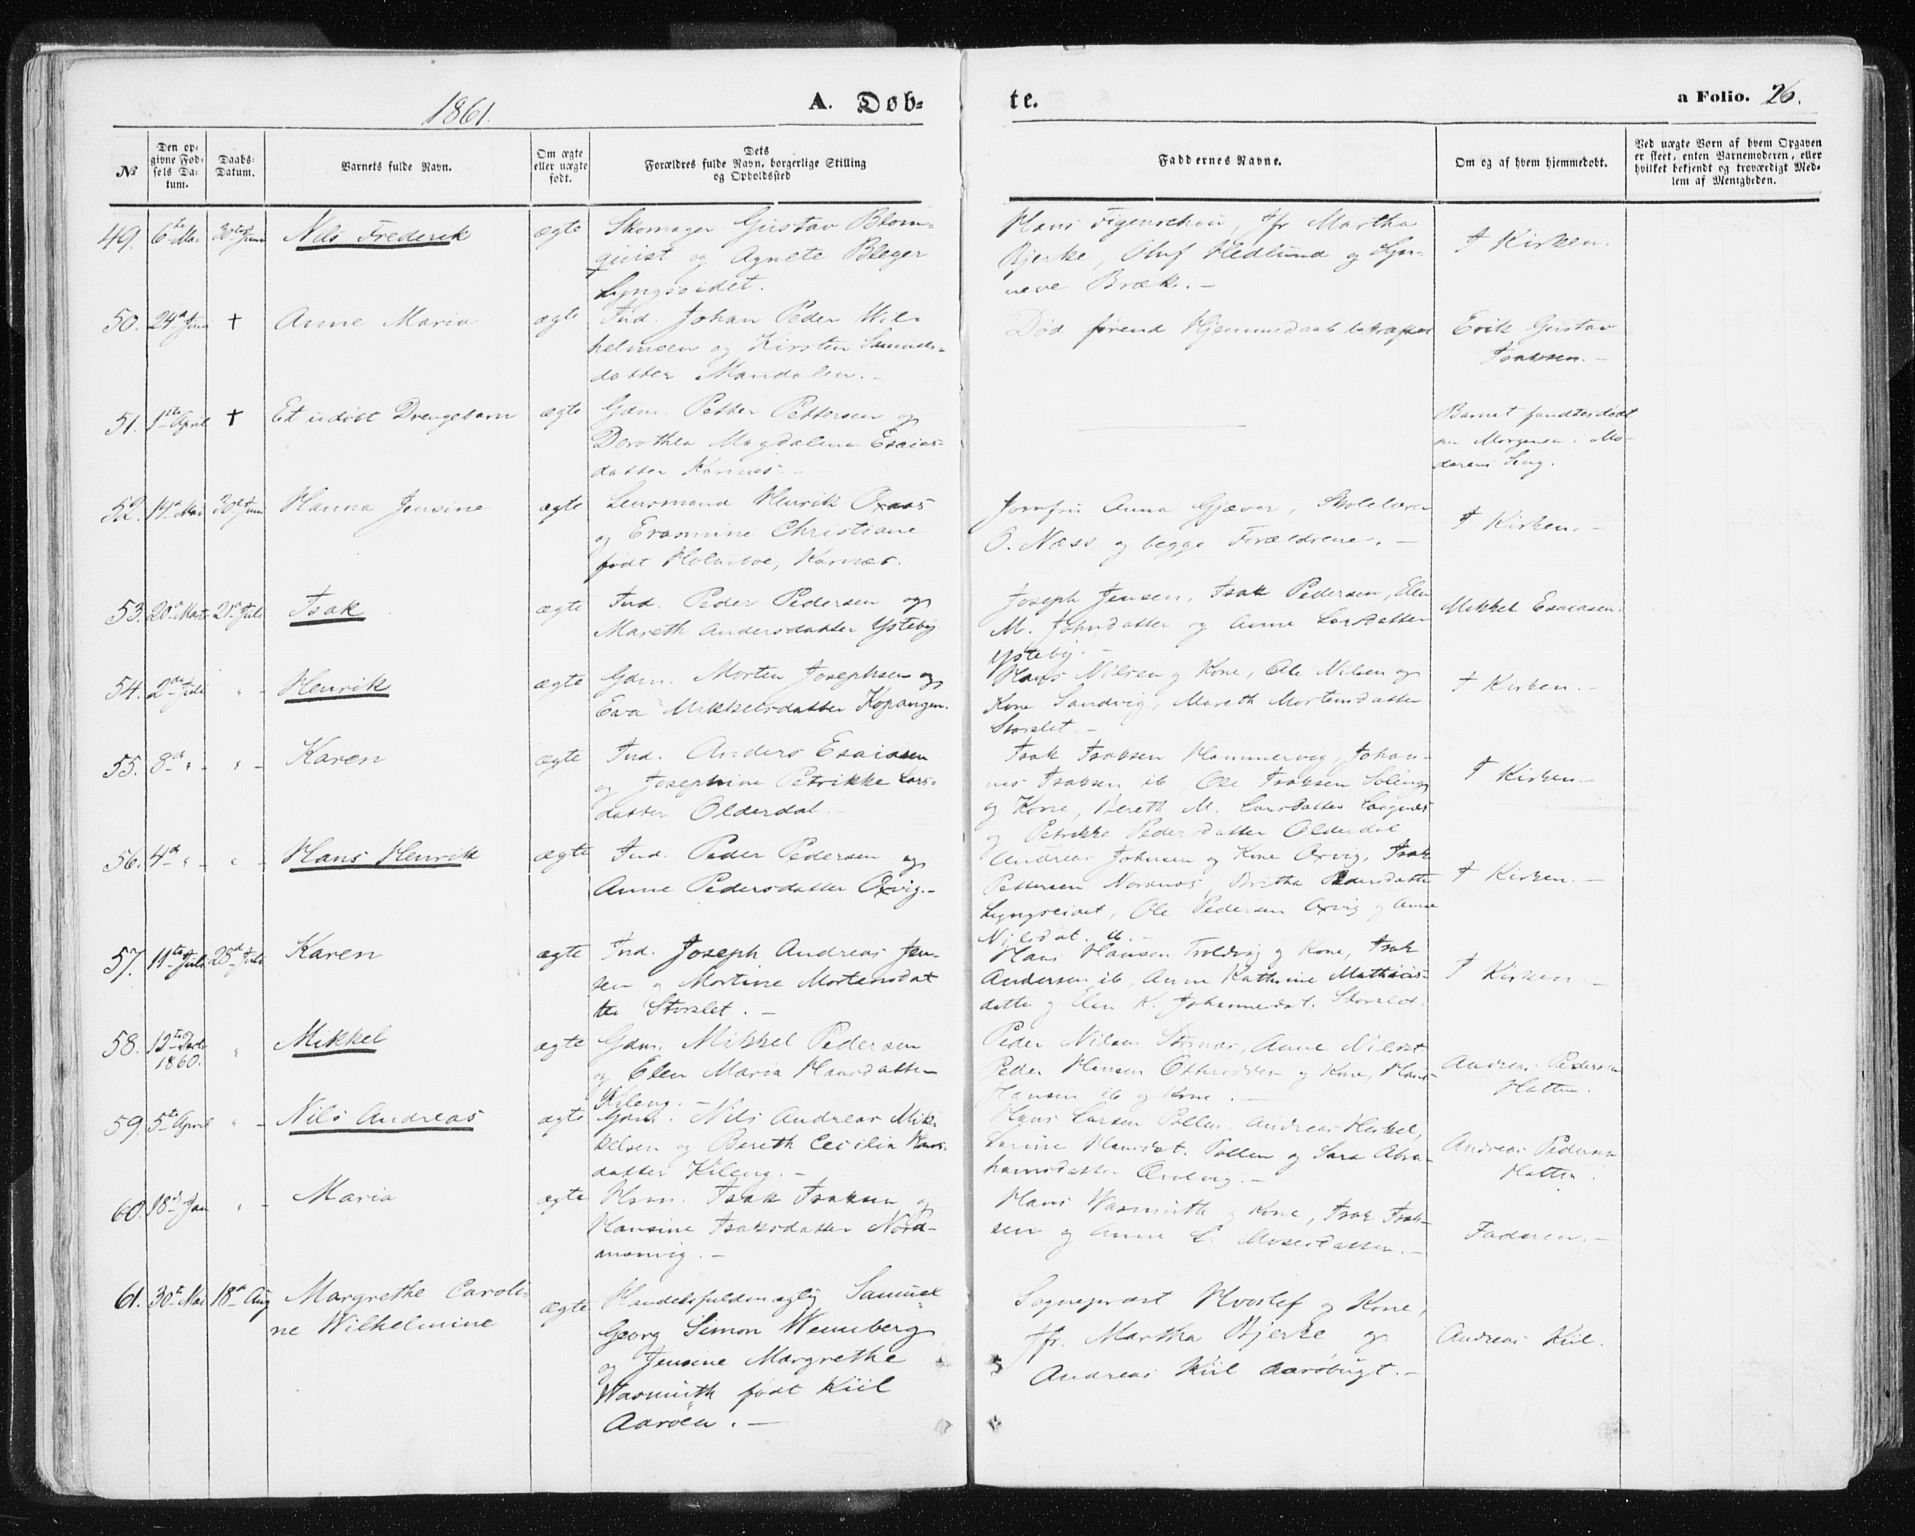 1861.
A. Døb-
te.
a Folio. 26.
№
Den op-
givne Fød-
sels Da-
tum.
Daabs-
Datum.
Barnets fulde Navn.
Om ægte
eller uægte
født.
Dets
Forældres fulde Navn, borgerlige Stilling
og Opholdssted
Faddernes Navne.
Om og af hvem hjemmedøbt.
Ved uægte Børn af hvem Opgaven
er skeet, enten Barnemoderen, eller
hvilket bekjendt og troværdigt Med-
lem af Menigheden.
49. 6te Mai 30te Juni Nils Frederik ægte
Skomager Gustav Blom-
quist og Agnete Bleger
Lyngseidet.
Hans Figenschou, Jfr Martha
Bjerke, Oluf Hedlund og Syn-
neve Bræk. -
I Kirken.
50. 24de Juni + Anne Maria ægte
Ind. Johan Peder Wil-
helmsen og Kirsten Samuels-
datter Mandalen. -
Død førend Hjemmedaab
Erik Gustav
Isaksen. -
51. 1ste April + Et udøbt Drengebarn ægte
Gdm. Petter Pettersen og
Dorothea Magdalena Esaias-
datter Karnes. -
Barnet fandtes dødt
om Morgenen i Mo-
derens Seng.
52. 14de Mai 30te Juni Hanna Jensine ægte
Lensmand Henrik Oxaas
og Erasmine Christiane
født Holmboe, Karnæs.
Jomfru Anna Gjæver, Skolelærer
O. Næss og begge Forældrene. -
I Kirken. -
53. 20de 21de Juli Isak ægte
Ind. Peder Pedersen og
Mareth Andersdatter Ysteby
Joseph Jensen, Isak Pedersen, Elen
M. Johnsdatter og Anne Larsdatter
Ysteby. -
Mikkel Esaiasen.
54. 2den Juli " - Henrik ægte
Gdm. Morten Josephsen og
Eva Mikkelsdatter Kopangen.
Hans Nilsen og Kone, Ole Nilsen og
Kone Sandvig, Mareth Mortensdatter
Storslet. -
I Kirken. -
55. 8de " - " - Karen ægte
Ind. Anders Esaiasen
og Josephine Petrikke Lars-
datter Olderdal. -
Isak Isaksen Hammervig, Johan-
nes Isaksen ib, Ole Isaksen
og Kone, Bereth M. Larsdatter
og Petrikke Pedersdatter Olderdal
I Kirken -
56. 4de " - " - Hans Henrik ægte
Ind. Peder Pedersen og
Anne Pedersdatter Oxvig. -
Andreas Johnsen og Kone Oxvig, Isak
Pettersen Nordnes, Britha Pedersdatter
Lyngseidet, Ole Pedersen Oxvig og Anne
Nilsdat. ib. -
I Kirken. -
57. 11te Juli 25de Juli Karen ægte
Ind. Joseph Andreas Jen-
sen og Mortine Mortensdat
ter Storslet. -
Hans Hansen Troldvig og Kone, Isak
Andersen ib, Anne Kathrine Mathias-
datter og Elen K. Johannesdat. Storslet
I Kirken -
58. 12te
1860. " Mikkel ægte
Gdm. Mikkel Pedersen
og Elen Maria Hansdatter
Kileng. -
Peder Nilsen Stornæs, Anne Nilsdt
Peder Hansen og Kone, Hans
Hansen ib og Kone. -
Andreas Pedersen
Hatten.
59. 5te April " - Nils Andreas ægte
Gdm. Nils Andreas Mik-
kelsen og Bereth Cecilia Hans-
datter Kileng. -
Hans Larsen Pollen, Andreas
Hansdat. Pollen og Sara Abra-
hamsdatter -
Andreas Pedersen
Hatten.
60. 18de Jan " - Maria ægte
Hsm. Isak Isaksen og
Hansine Isaksdatter Nord-
manvig. -
Hans Wasmuth og Kone, Isak Isak-
sen og Anne L. Mosesdatter. -
Faderen. -
61. 30te Mai 18de Aug Margrethe Caroli-
ne Wilhelmine ægte
Handelsfuldmægtig Samuel
Georg Simon Wennberg
og Jensine Margrethe
Wasmuth født Kiil
Aarøen. -
Sogneprest Hvoslef og Kone,
Jfr. Martha Bjerke og
Andreas Kiil Aarøbugt. -
Andreas Kiil.